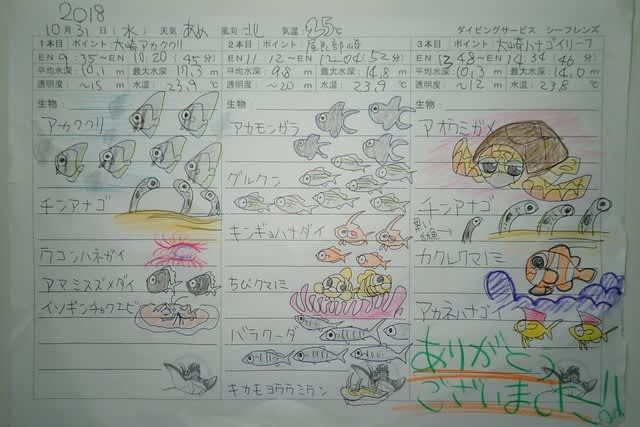 2018
10月31日(水) 天気 あめ 風向 北 気温 25℃ ダイビングサービス シーフレンズ
1本目 ポイント 大崎アカククリ
EN 9:35〜EX 10:20 (45分)
平均水深: 10.1m 最大水深: 17.3m
透明度: 〜15m 水温: 23.9℃
生物:
アカククリ
チンアナゴ
ウコンハネガイ
アマミスズメダイ
イソギンチャクエビ
2本目 ポイント 屋良部崎
EN 11:12〜EX 12:04 (52分)
平均水深: 9.8m 最大水深: 14.8m
透明度: 〜20m 水温: 23.9℃
生物:
アカモンガラ
グルクン
キンギョハナダイ
ちびクマノミ
バラクーダ
キカモヨウウミウシ
3本目 ポイント 大崎ハナゴイリーフ
EN 13:48〜EX 14:34 (46分)
平均水深: 10.3m 最大水深: 14.0m
透明度: 〜12m 水温: 23.8℃
生物:
アオウミガメ
チンアナゴ
黒い
幼魚
カクレクマノミ
アカネハナゴイ
ありがとう
ございました!!